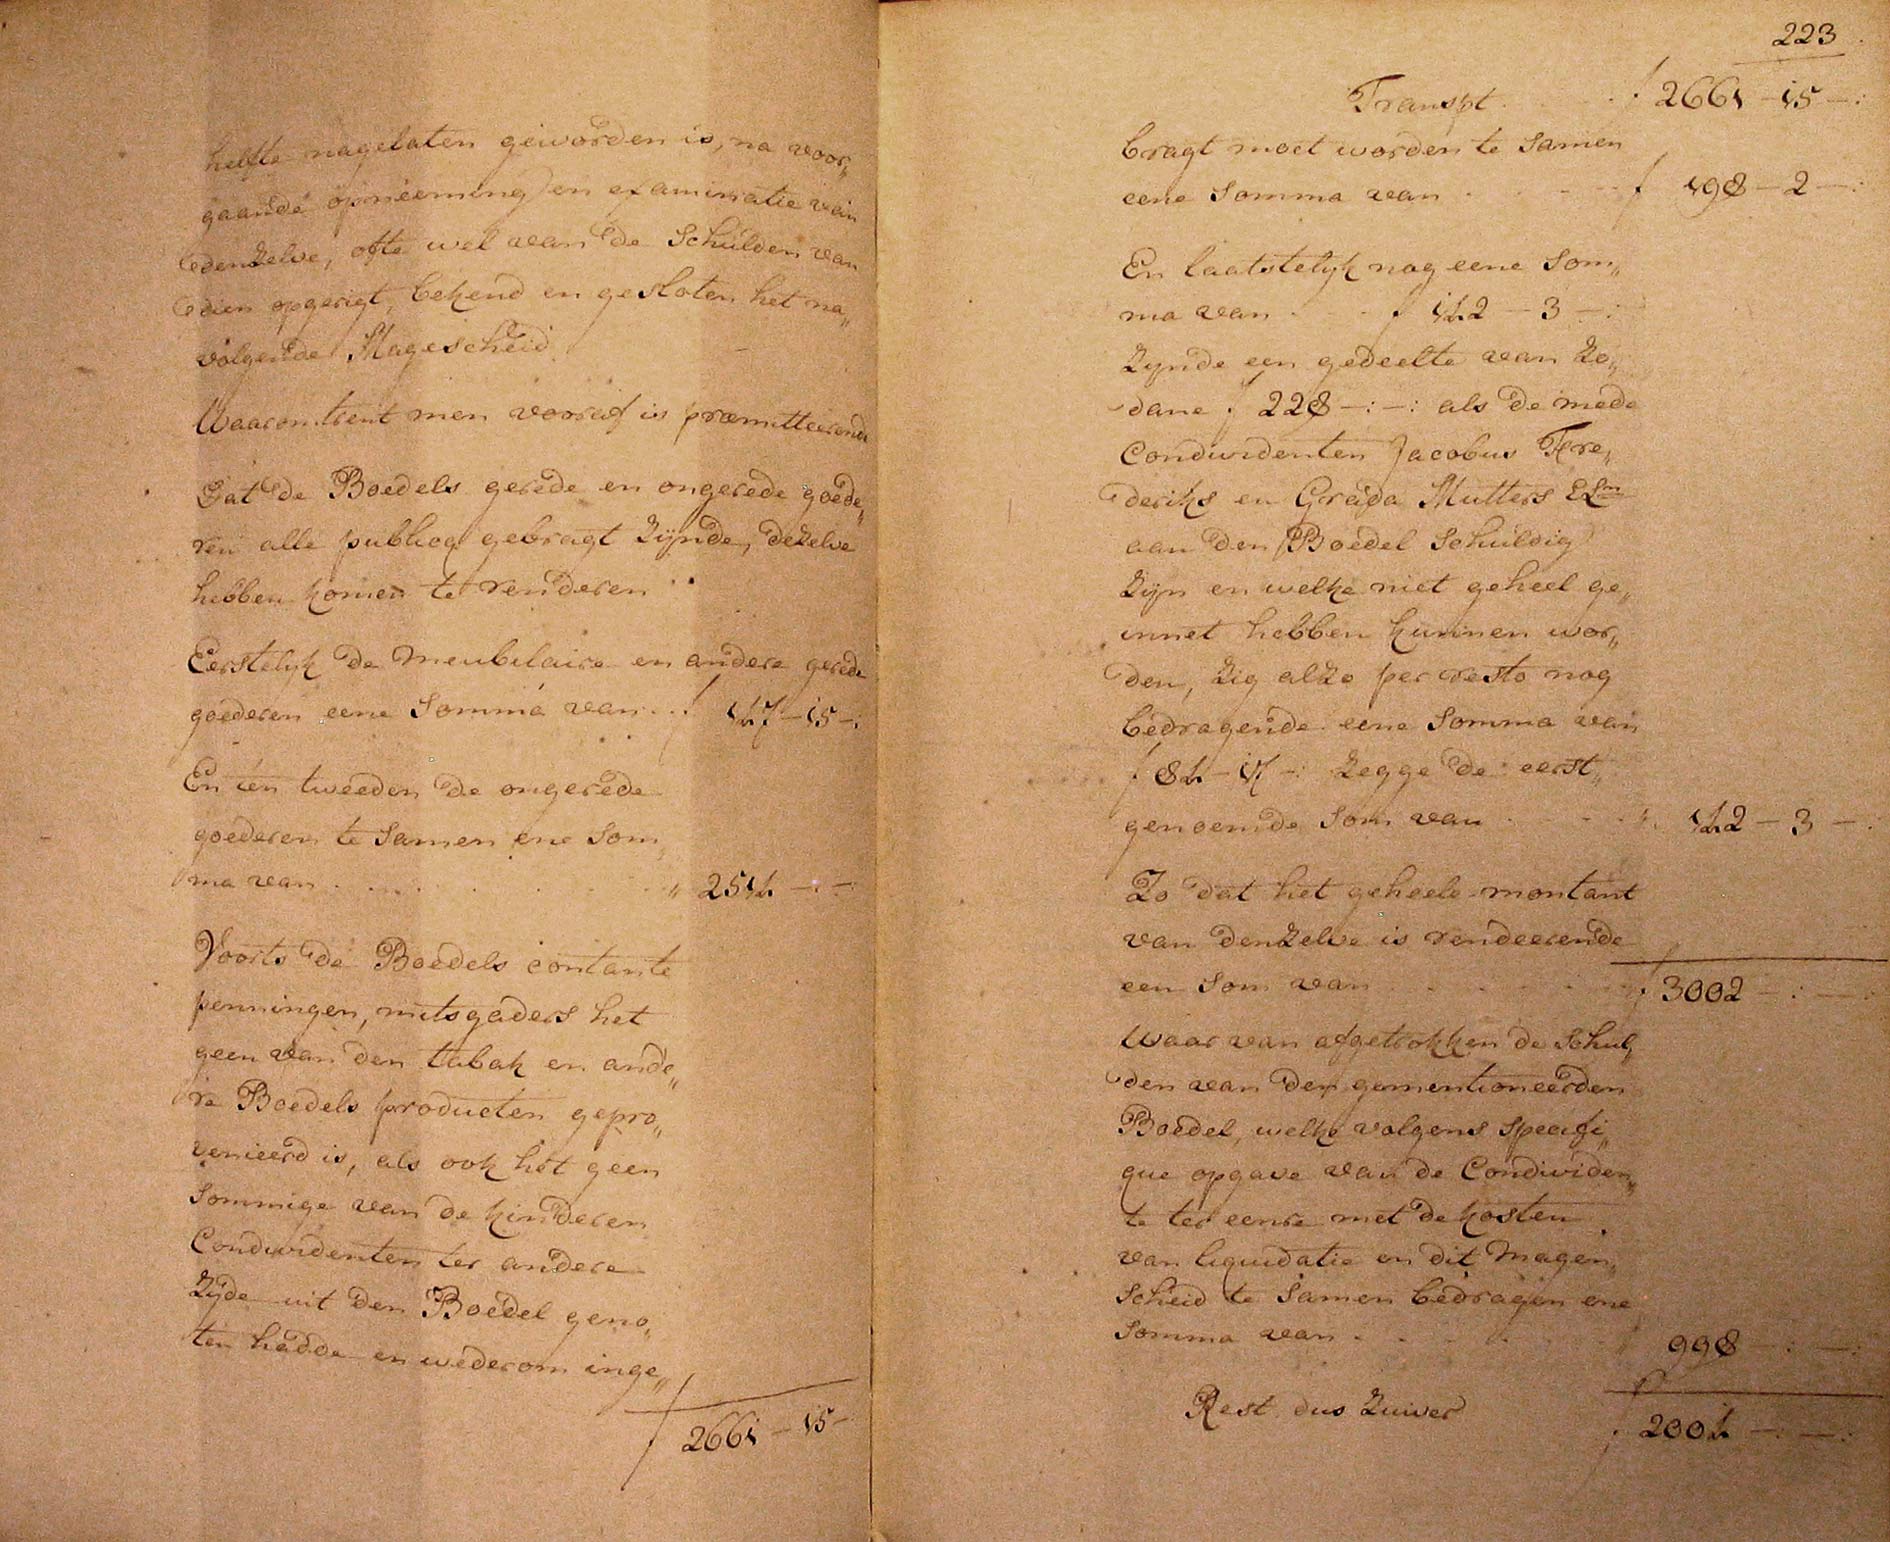 helfte nagelaten geworden is, na voor„
gaande opneeming en examinatie van
denzelve, ofte wel van de Schulden van
dien opgerigt, bekend en gesloten het na„
volgende Magescheid.
Waaromtrent men vooraf is præmitteerende
Dat de Boedels gerede en ongerede goede„
ren alle publicq gebragt zijnde, dezelve
hebben komen te renderen
Eerstelyk de Meubilaire en andere gerede
goederen eene Somma van . . f 147 – 15 –:
En ten tweeden de ongerede
goederen te Samen ene Som„
ma van . . . . . . . „ 2514 –: –:
Voorts de Boedels contante
penningen, mitsgaders het
geen van den tabak en ande„
re Boedels producten gepro„
venieerd is, als ook het geen
Sommige van de kinderen
Condividenten ter andere
Zyde uit den Boedel geno„
ten hadde en wederom inge„
f 2661 – 15 –
223
Transpt . . . . f 2661 – 15 –:
bragt moet worden te Samen
eene Somma van . . . . . f 198 – 2 –:
En laatstelyk nog eene Som„
ma van . . . f 142 – 3 –:
Zynde een gedeelte van Zo„
dane f 228 –: –: als de mede
Condividenten Jacobus Fre„
deriks en Grada Mutters ELm
aan den Boedel Schuldig
Zijn en welke niet geheel ge„
innet hebben kunnen wor„
den, Zig alzo per resto nog
bedragende eene Somma van
f 84 – 17 –: Zegge de eerst„
genoemde Som van . . . . „ 142 – 3 –:
Zo dat het geheele montant
van denzelve is rendeerende
een Som van . . . . . f 3002 –: –:
Waar van afgetrokken de Schul„
den van den gementioneerden
Boedel, welke volgens specifi„
que opgave van de Condividen„
te ter eenre met de kosten
van liquidatie en dit Magen„
Scheid te Samen bedragen ene
Somma van . . . . . „ 998 –: –:
Rest dus Zuiver f 2004 –: –: